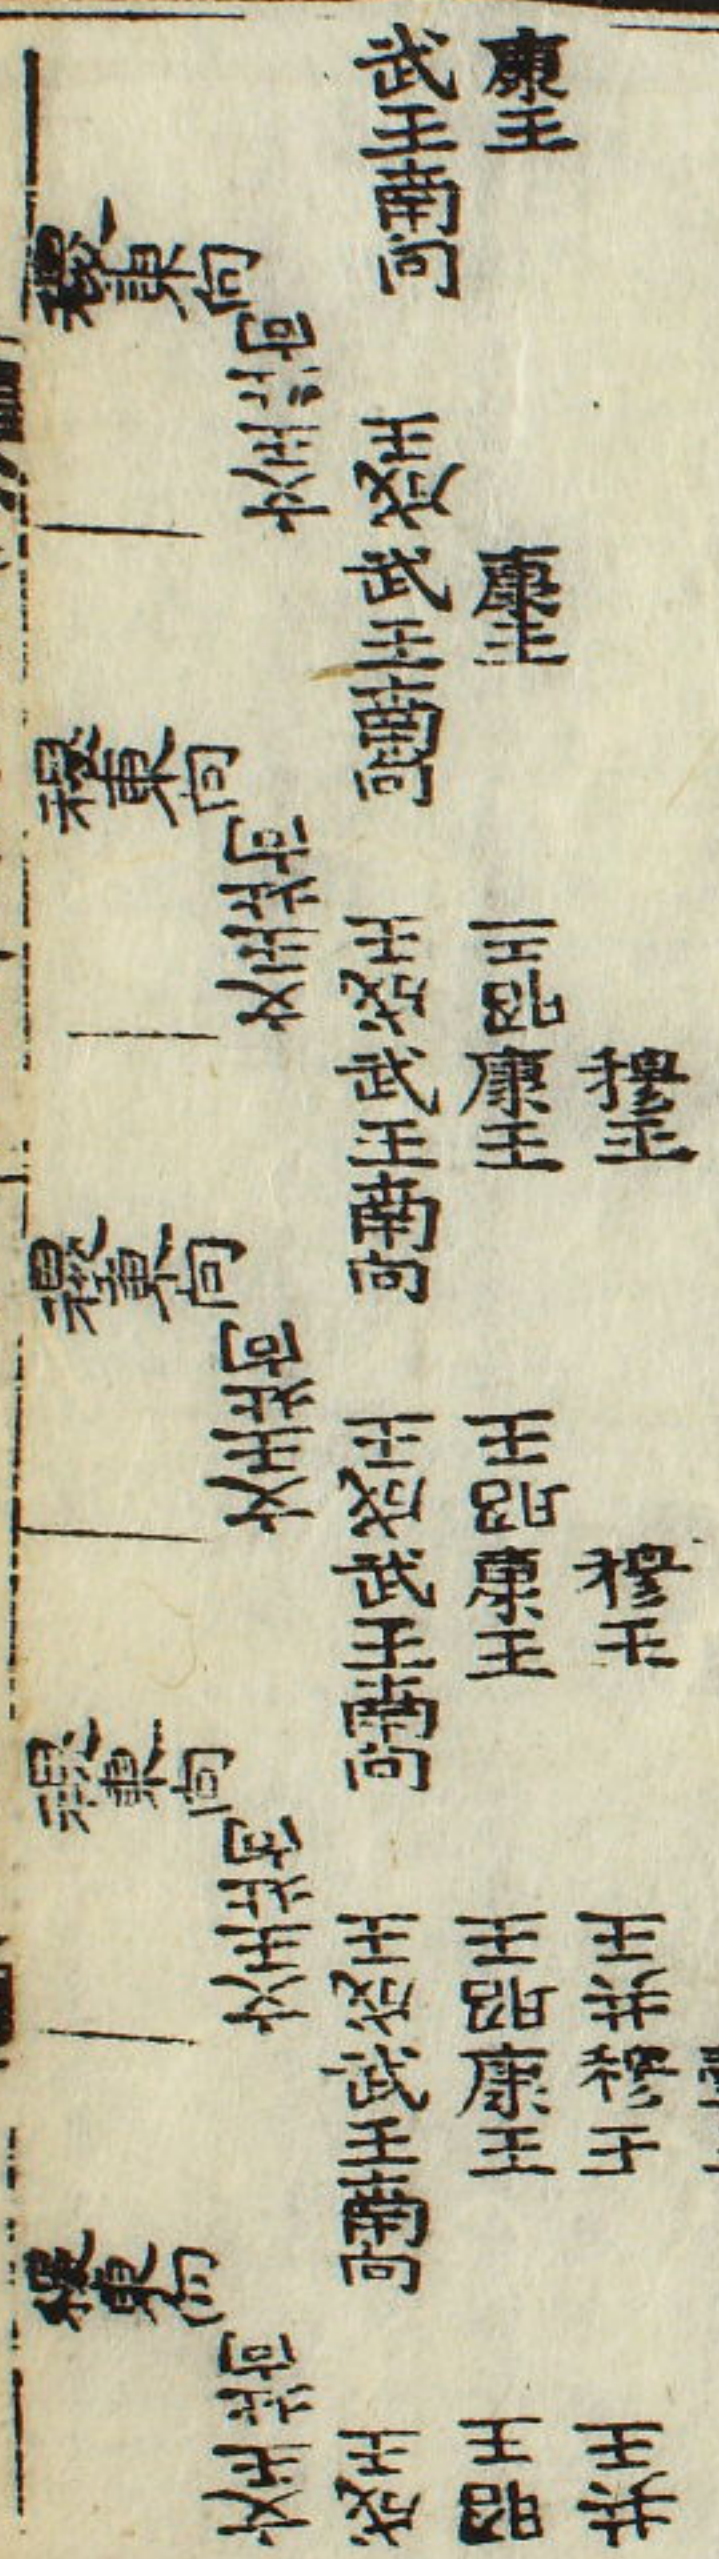 康王
武王南向
稷東向
文王北向
成王
康王
武王南向
稷東向
文王北向
成王
昭王
穆王
康王
武王南向
稷東向
文王北向
成王
昭王
穆王
康王
武王南向
稷東向
文王北向
成王
昭王
共王
穆王
康王
武王南向
稷東向
文王北向
成王
昭王
共王